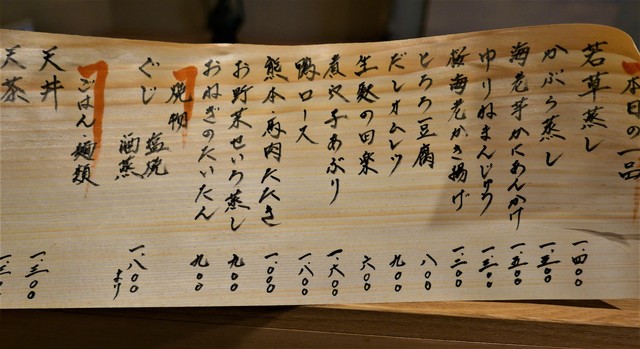 本日の一品
若草蒸し 一、四〇〇
かぶら蒸し 一、三〇〇
海老芋かにあんかけ 一、五〇〇
ゆりねまんじゅう 一、三〇〇
桜海老かき揚げ 一、二〇〇
とろろ豆腐 八〇〇
だしオムレツ 九〇〇
生麩の田楽 六〇〇
煮穴子あぶり 一、六〇〇
鴨ロース 一、八〇〇
熊本馬肉たたき 一、〇〇〇
お野菜せいろ蒸し 九〇〇
おねぎのたいたん 九〇〇
焼物
ぐじ 塩焼 酒蒸 一、八〇〇より
ごはん 麺類
天丼 一、三〇〇
天茶